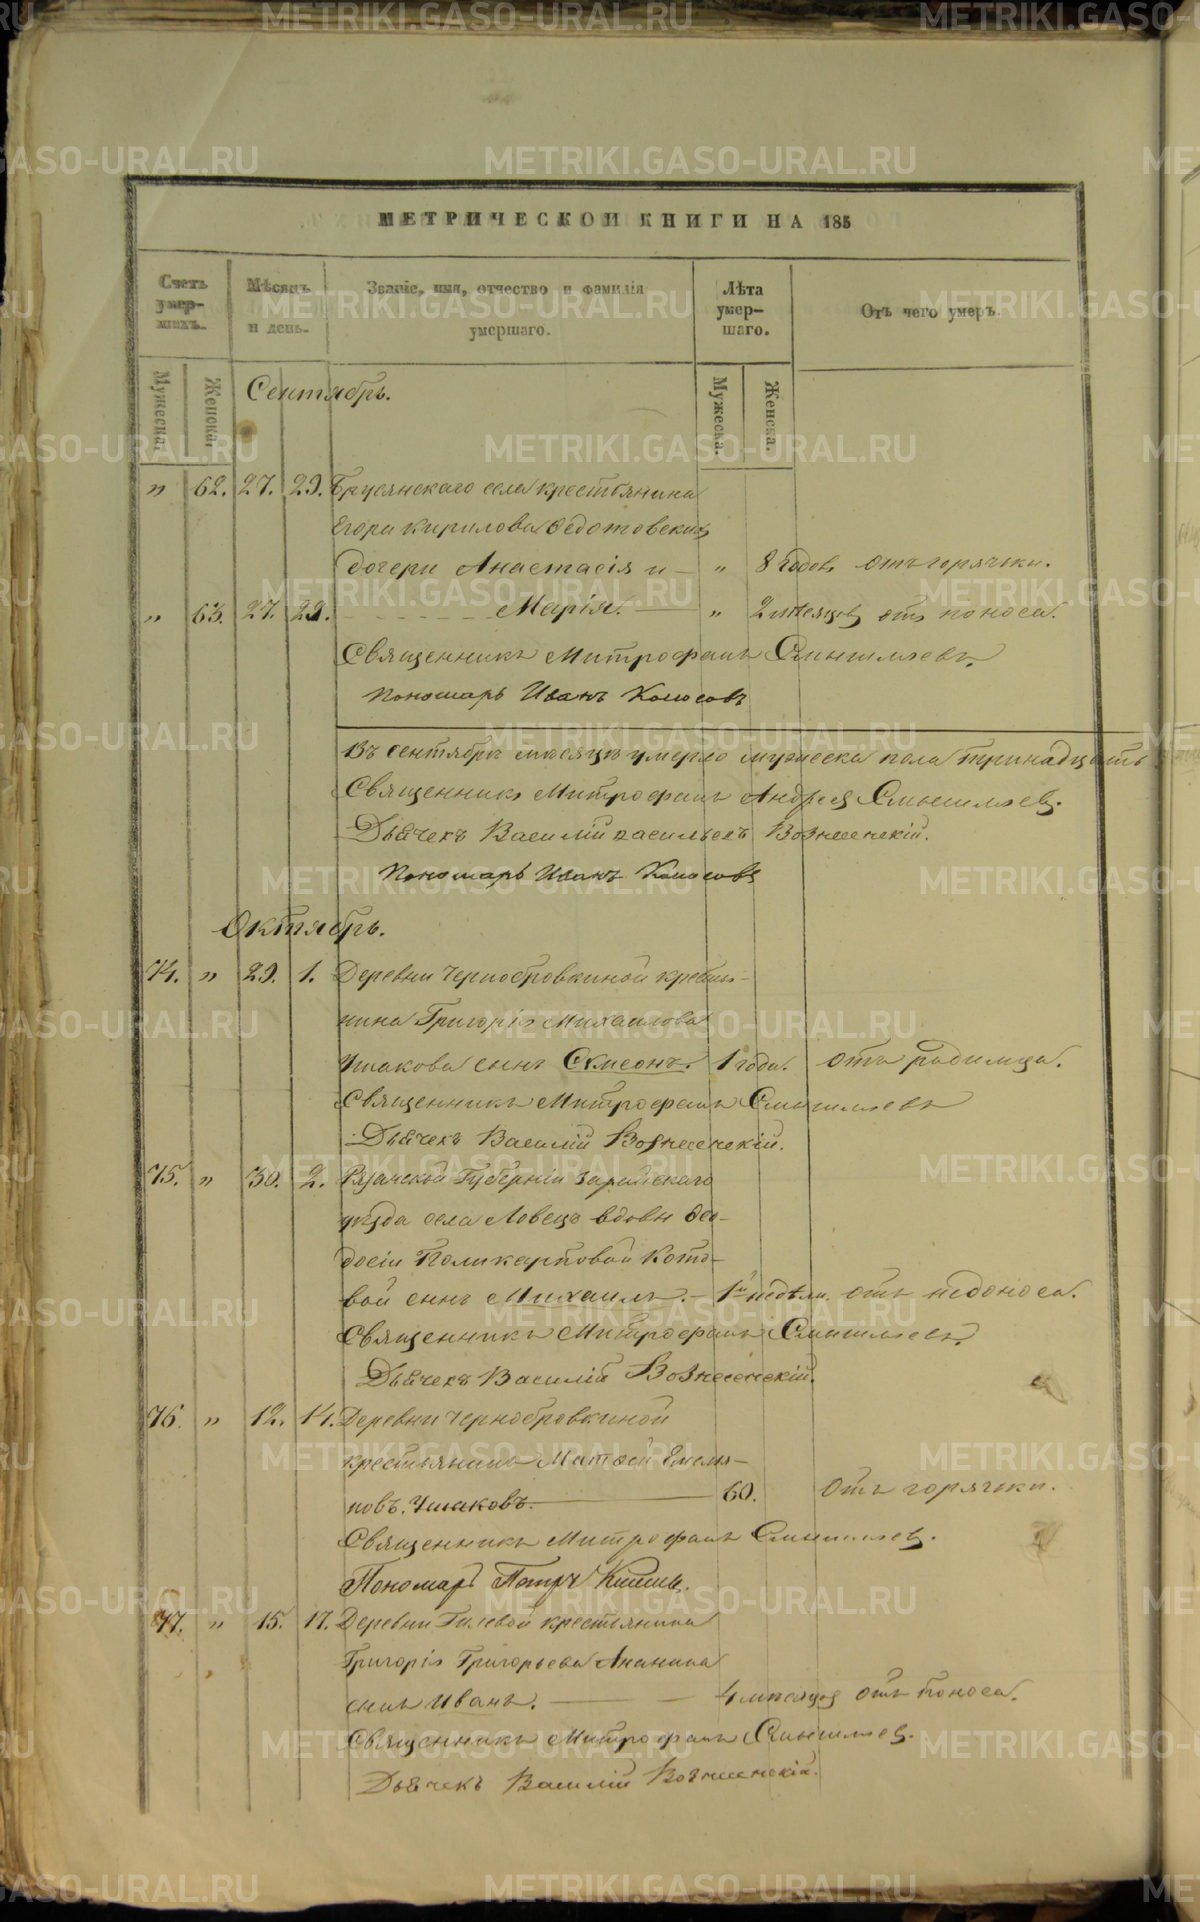 МЕТРИЧЕСКОЙ КНИГИ НА 185
Счетъ умер-шихъ.
Мѣсяцъ и день.
Званіе, имя, отчество и фамилія умершаго.
Лѣта умер-шаго.
Отъ чего умеръ.
Мужеска.
Женска.
Мужеска.
Женска.
Сентябрь.
„ 62. 27. 29. Бруснянскаго села крестьянина
Егора Кирилова Федотовскихъ
дочери Анастасія и — „ 8 годовъ отъ горячки.
„ 63. 27. 29. Марія. — „ 2 мѣсяцовъ отъ поноса.
Священникъ Митрофанъ Смышляевъ.
Пономарь Иванъ Колосовъ
Въ сентябрѣ мѣсяцѣ умерло мужеска пола тринадцать
Священникъ Митрофанъ Андреевъ Смышляевъ.
Дьячекъ Василій Васильевъ Вознесенскій.
Пономарь Иванъ Колосовъ
Октябрь.
74. „ 29. 1. Деревни Чернобровкиной кресть-
янина Григорія Михаилова
Ушакова сынъ Симеонъ. 1 года. отъ родимца.
Священникъ Митрофанъ Смышляевъ
Дьячекъ Василій Вознесенскій.
75. „ 30. 2. Рязанской Губерніи Зарайскаго
уѣзда села Ловецъ вдовы Ѳео-
досіи Поликарповой Кото-
вой сынъ Михаилъ. — 1й недѣли. отъ недоноса.
Священникъ Митрофанъ Смышляевъ.
Дьячекъ Василій Вознесенскій.
76. „ 12. 14. Деревни Чернобровкиной
крестьянинъ Матѳей Емелья-
новъ. Ушаковъ. — 60. Отъ горячки.
Священникъ Митрофанъ Смышляевъ.
Пономарь Петръ
77. „ 15. 17. Деревни Гилевой крестьянина
Григорія Григорьева Ананина
сынъ Иванъ. — 4 мѣсяцовъ отъ поноса.
Священникъ Митрофанъ Смышляевъ.
Дьячекъ Василій Вознесенскій.
METRIKI.GASO-URAL.RU